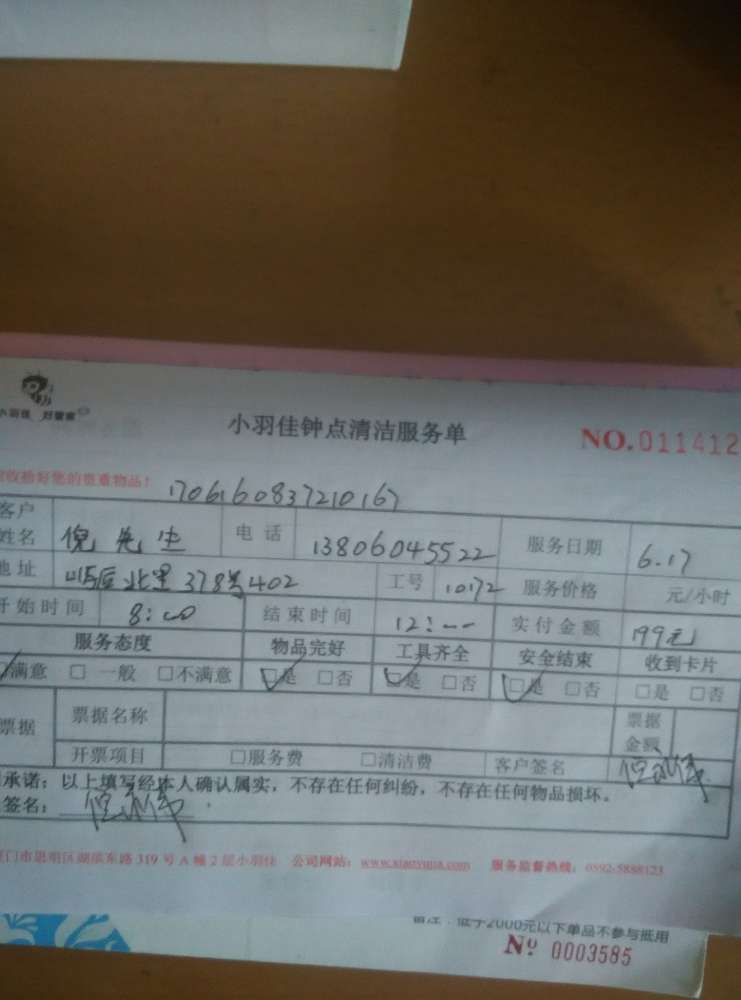 小羽佳 好管家
小羽佳钟点清洁服务单
NO.011412
收拾好您的贵重物品!
1706160837210167
客户姓名 倪先生 电话 13806045522 服务日期 6.17
地址 屿后北里378号402 工号 10172 服务价格 元/小时
开始时间 8:00 结束时间 12:00 实付金额 199元
服务态度 物品完好 工具齐全 安全结束 收到卡片
满意 □一般 □不满意 □是 □否 □是 □否 □是 □否 □是 □否
票据 票据名称 票据金额
开票项目 □服务费 □清洁费 客户签名
承诺:以上填写经本人确认属实,不存在任何纠纷,不存在任何物品损坏。
签名:
门市思明区湖滨东路319号A幢2层小羽佳 公司网站:www.xiaoyujia.com 服务监督热线:0592-5888123
备注:低于2000元以下单品不参与抵用
Nº 0003585